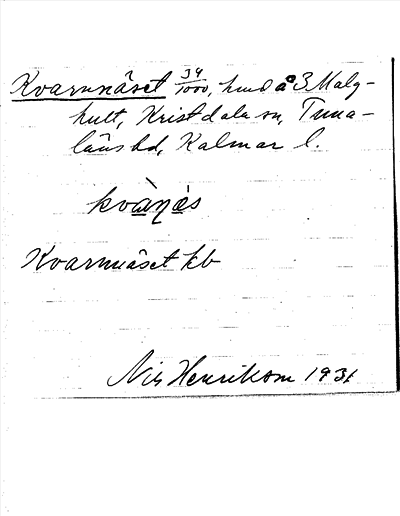 Kvarnnäset 34/1000, hmd å 3 Malg-
hult, Kristdala sn, Tuna-
läns hd, Kalmar l.
kvàṇás
Kvarnnäset kb
Nils Henrikson 1931